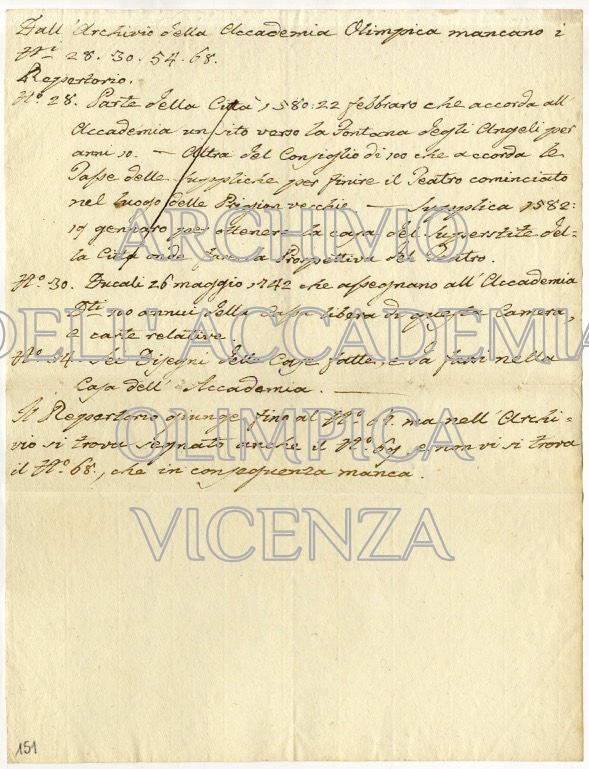 Dall'Archivio della Accademia Olimpica mancano i
Nⁱ 28. 30. 54. 68.
Repertorio.
Nº 28. Parte della Città 1580: 22 febbraro che accorda all'
Accademia un sito verso la Fontana degli Angeli per
anni 10. — Altra del Consiglio di 100 che accorda le
Passe delle suppliche per finire il Teatro cominciato
nel luogo delle Prigion vecchie — Supplica 1582:
19 gennaro per ottenere la casa del Superstite del-
la Città onde fare la Prospettiva del Teatro.
Nº 30. Ducali 26 maggio 1742 che assegnano all'Accademia
Dti 100 annui della Cassa libera di questa Camera,
e carte relative.
Nº 54 — Sei Disegni delle Case fatte, e da farsi nella
Casa dell'Accademia. —
Il Repertorio giunge fino al Nº 67. ma nell'Archi=
vio si trova segnato anche il Nº 69, e non vi si trova
il Nº 68., che in conseguenza manca.
ARCHIVIO
DELL'ACCADEMIA
OLIMPICA
VICENZA
151